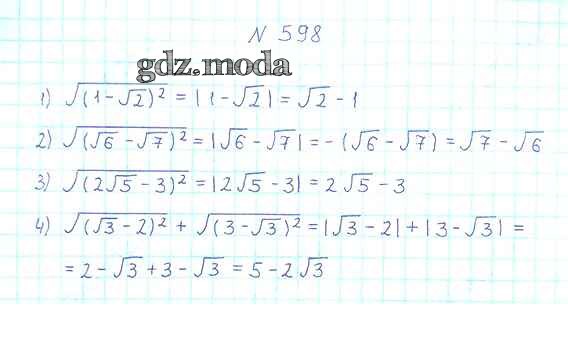 N 598
gdz.moda
1) √(1-√2)² = |1-√2| = √2 - 1
2) √(√6 - √7)² = |√6 - √7| = - (√6 - √7) = √7 - √6
3) √(2√5 - 3)² = |2√5 - 3| = 2√5 - 3
4) √(√3 - 2)² + √(3 - √3)² = |√3 - 2| + |3 - √3| =
= 2 - √3 + 3 - √3 = 5 - 2√3